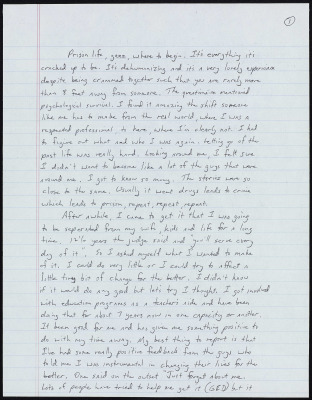 1
Prison life, geez, where to begin. It's everything it's
cracked up to be. It's dehumanizing and it's a very lonely experience
despite being crammed together such that you are rarely more
than 8 feet away from someone. The questionnaire mentioned
psychological survival. I find it amazing the shift someone
like me has to make from the real world, where I was a
respected professional, to here, where I'm clearly not. I had
to figure out what and who I was again. Letting go of the
past life was really hard. Looking around me, I felt sure
I didn't want to become like a lot of the guys that were
around me. I got to know so many. The stories were so
close to the same. Usually it went drugs leads to crime
which leads to prison, repeat, repeat, repeat.
After awhile, I came to get it that I was going
to be separated from my wife, kids and life for a long
time. 12½ years the judge said and "you'll serve every
day of it". So I asked myself what I wanted to make
of it. I could do very little or I could try to affect a
little tiny bit of change for the better. I didn't know
if it would do any good but let's try I thought. I got involved
with education programs as a teacher's aide and have been
doing that for about 7 years now in one capacity or another.
It been good for me and has given me something positive to
do with my time away. My best thing to report is that
I've had some really positive feedback from the guys who
told me I was instrumental in changing their lives for the
better. One said on the outset "Just forget about me.
Lots of people have tried to help me get it (GED) but it